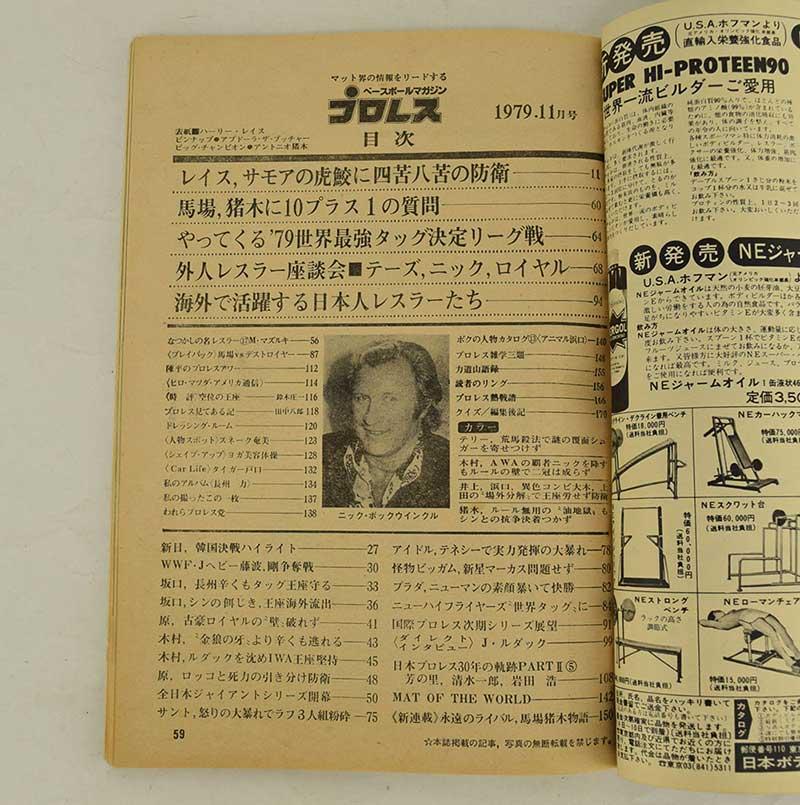 マット界の情報をリードする
ベースボールマガジン
プロレス
1979.11月号
目次
表紙■ハーリー・レイス
ピンナップ●アブドーラ・ザ・ブッチャー
ビッグ・チャンピオン●アントニオ猪木
レイス,サモアの虎鮫に四苦八苦の防衛 11
馬場,猪木に10プラス1の質問 60
やってくる'79世界最強タッグ決定リーグ戦 64
外人レスラー座談会■テーズ,ニック,ロイヤル 68
海外で活躍する日本人レスラーたち 94
なつかしの名レスラー⑰M・マズルキ 56
〈プレイバック〉馬場vsデストロイヤー 87
陳平のプロレスアワー 112
〈ヒロ・マツダ・アメリカ通信〉 114
〈時 評〉空位の王座 鈴木庄一 116
プロレス見てある記 田中八郎 118
ドレッシング・ルーム 120
〈人物スポット〉スネーク奄美 123
〈シェイプ・アップ〉ヨガ美容体操 128
〈Car Life〉タイガー戸口 132
私のアルバム〈長州 力〉 134
私の撮ったこの一枚 137
われらプロレス党 138
ニック・ボックウインクル
ボクの人物カタログ⑬〈アニマル浜口〉 140
プロレス雑学三題 148
力道山語録 155
読者のリング 156
プロレス熱戦譜 166
クイズ/編集後記 170
カラー
テリー,荒馬殺法で謎の覆面シュ
ガーを寄せつけず
木村,AWAの覇者ニックを降す
もルールの壁で二冠は成らず
井上,浜口,異色コンビ大木,上
田の〝場外分解〟で王座労せず防衛
猪木,ルール無用の〝油地獄〟も
シンとの抗争決着つかず
新日,韓国決戦ハイライト 27
WWF・Jヘビー藤波,剛争奪戦 30
坂口,長州辛くもタッグ王座守る 33
坂口,シンの餌じき,王座海外流出 36
原,古豪ロイヤルの〝壁〟破れず 41
木村,〝金狼の牙〟より辛くも逃れる 43
木村,ルダックを沈めIWA王座堅持 45
原,ロッコと死力の引き分け防衛 48
全日本ジャイアントシリーズ開幕 50
サント,怒りの大暴れでラフ3人組粉砕 75
アイドル,テネシーで実力発揮の大暴れ 78
怪物ビッガム,新星マーカス問題せず 80
プラダ,ニューマンの素顔暴いて快勝 82
ニューハイフライヤーズ〝世界タッグ〟に 84
国際プロレス次期シリーズ展望 91
〈ダイレクト
インタビュー〉J・ルダック 99
日本プロレス30年の軌跡PARTⅡ⑤
芳の里,清水一郎,岩田 浩 108
MAT OF THE WORLD 142
《新連載》永遠のライバル,馬場猪木物語 150
59
☆本誌掲載の記事,写真の無断転載を禁じます。
新発売
U.S.A.ホフマンより
直輸入栄養強化食品
SUPER HI-PROTEEN90
世界一流ビルダーご愛用
新発売
NEジャー
U.S.A.ホフマン
NEジャームオイル 1缶液状
定価3,50
特価18,000円
(送料当社負担)
NEカーハック
特価75,000円
(送料当社負担)
NEスクワット台
特価60,000円
(送料当社負担)
特価
60,000円
NEストロング
ベンチ
ラックの高さ
調節式
NEローマンチェア
特価15,000円
(送料当社負担)
カタログ
☎東京03(841)5311
郵便番号110
日本ボデ